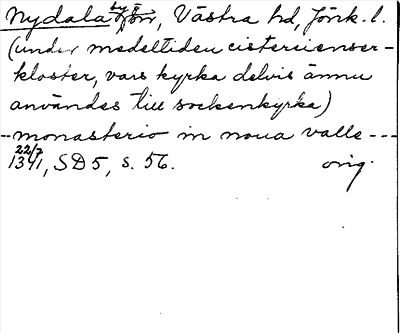 Nydala by, Västra hd, Jönk. l.
(under medeltiden cistercienser-
kloster, vars kyrka delvis ännu
användes till sockenkyrka)
-- monasterio in noua valle ---
22/7 1341, SD 5, s. 56. orig.